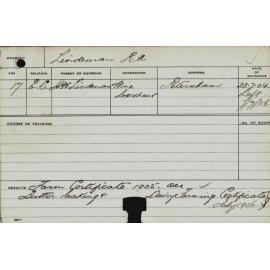 STUDENT Lindeman R A
AGE RELIGION PARENT OR GUARDIAN OCCUPATION ADDRESS DATE OF ENTRANCE
17 E.C. Lindeman Wine Merchant Petersham 23.7.04
Left
7/7/06
COURSE OF TRAINING
RESULTS Farm Certificate 1905.
Butter Making & Dairy Farming Certificate
July 1906